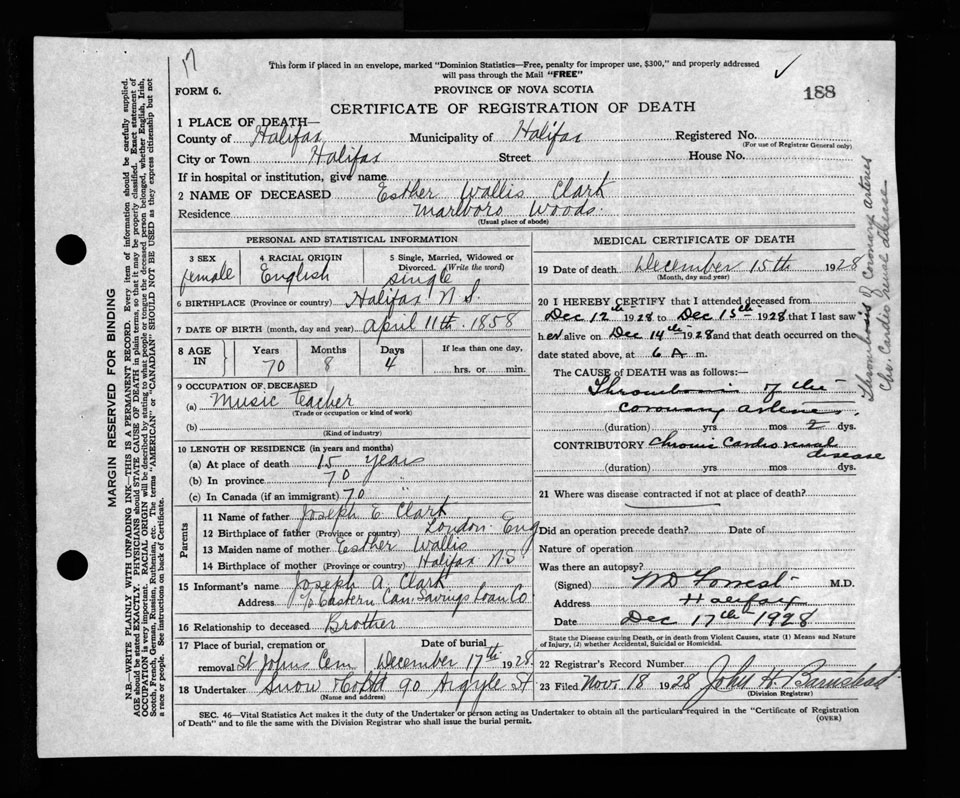 17
This form if placed in an envelope, marked "Dominion Statistics—Free, penalty for improper use, $300," and properly addressed
will pass through the Mail "FREE"
✓
FORM 6.
PROVINCE OF NOVA SCOTIA
188
CERTIFICATE OF REGISTRATION OF DEATH
1 PLACE OF DEATH—
County of Halifax Municipality of Halifax Registered No.
(For use of Registrar General only)
City or Town Halifax Street House No.
If in hospital or institution, give name
2 NAME OF DECEASED Esther Wallis Clark
Residence Marlboro Woods.
(Usual place of abode)
PERSONAL AND STATISTICAL INFORMATION
3 SEX 4 RACIAL ORIGIN 5 Single, Married, Widowed or
Divorced. (Write the word)
female English single
6 BIRTHPLACE (Province or country) Halifax N.S.
7 DATE OF BIRTH (month, day and year) April 11th. 1858
8 AGE IN Years Months Days If less than one day,
70 8 4 hrs. or min.
9 OCCUPATION OF DECEASED
(a) Music teacher
(Trade or occupation or kind of work)
(b)
(Kind of industry)
10 LENGTH OF RESIDENCE (in years and months)
(a) At place of death 15 years
(b) In province 70
(c) In Canada (if an immigrant) 70 "
Parents
11 Name of father Joseph E. Clark
12 Birthplace of father (Province or country) London. Eng
13 Maiden name of mother Esther Wallis
14 Birthplace of mother (Province or country) Halifax NS
15 Informant's name Joseph A. Clark
Address c/o Eastern Can. Savings Loan Co
16 Relationship to deceased Brother
17 Place of burial, cremation or Date of burial
removal St Johns Cem December 17th 1928.
18 Undertaker Snow & Co Ltd 90 Argyle St
(Name and address)
MEDICAL CERTIFICATE OF DEATH
19 Date of death December 15th 1928
(Month, day and year)
20 I HEREBY CERTIFY that I attended deceased from
Dec 12th 1928 to Dec 15th 1928 that I last saw
her alive on Dec 14th 1928 and that death occurred on the
date stated above, at 6 A m.
The CAUSE of DEATH was as follows:—
Thrombosis of the
coronary arteries.
(duration) yrs mos 2 dys.
CONTRIBUTORY Chronic Cardio renal
disease
(duration) yrs. mos. dys.
21 Where was disease contracted if not at place of death?
Did an operation precede death? Date of
Nature of operation
Was there an autopsy?
(Signed) W D Forrest M.D.
Address Halifax
Date Dec 17th 1928
State the Disease causing Death, or in death from Violent Causes, state (1) Means and Nature
of Injury, (2) whether Accidental, Suicidal or Homicidal.
22 Registrar's Record Number
23 Filed Nov. 18 1928 John H. Barnstead
(Division Registrar)
SEC. 46—Vital Statistics Act makes it the duty of the Undertaker or person acting as Undertaker to obtain all the particulars required in the "Certificate of Registration
of Death" and to file the same with the Division Registrar who shall issue the burial permit.
(OVER)
Thrombosis of Coronary arteries
Chr. Cardio renal disease
MARGIN RESERVED FOR BINDING
N.B.—WRITE PLAINLY WITH UNFADING INK—THIS IS A PERMANENT RECORD. Every item of information should be carefully supplied.
AGE should be stated EXACTLY. PHYSICIANS should STATE CAUSE OF DEATH in plain terms, so that it may be properly classified. Exact statement of
OCCUPATION is very important. RACIAL ORIGIN will be described by stating to what people or tongue the deceased person belonged, whether English, Irish,
Scotch, French, German, Russian, Ruthenian, etc. The terms "AMERICAN" or "CANADIAN" SHOULD NOT BE USED as they express citizenship but not
a race or people. See instructions on back of Certificate.